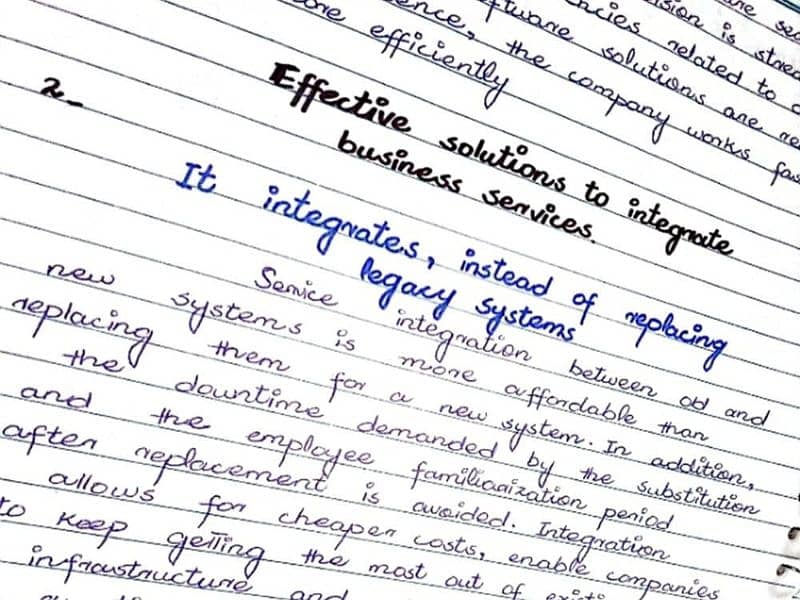 sion is stored
ncies related to
ftware solutions are
ence, the company works fas
more efficiently
2- Effective solutions to integrate
business services.
It integrates, instead of replacing
legacy systems
Service integration between old and
new systems is more affordable than
replacing them for a new system. In addition,
the downtime demanded by the substitution
and the employee familiarization period
after replacement is avoided. Integration
allows for cheaper costs, enable companies
to keep getting the most out of existi
infraustructure and